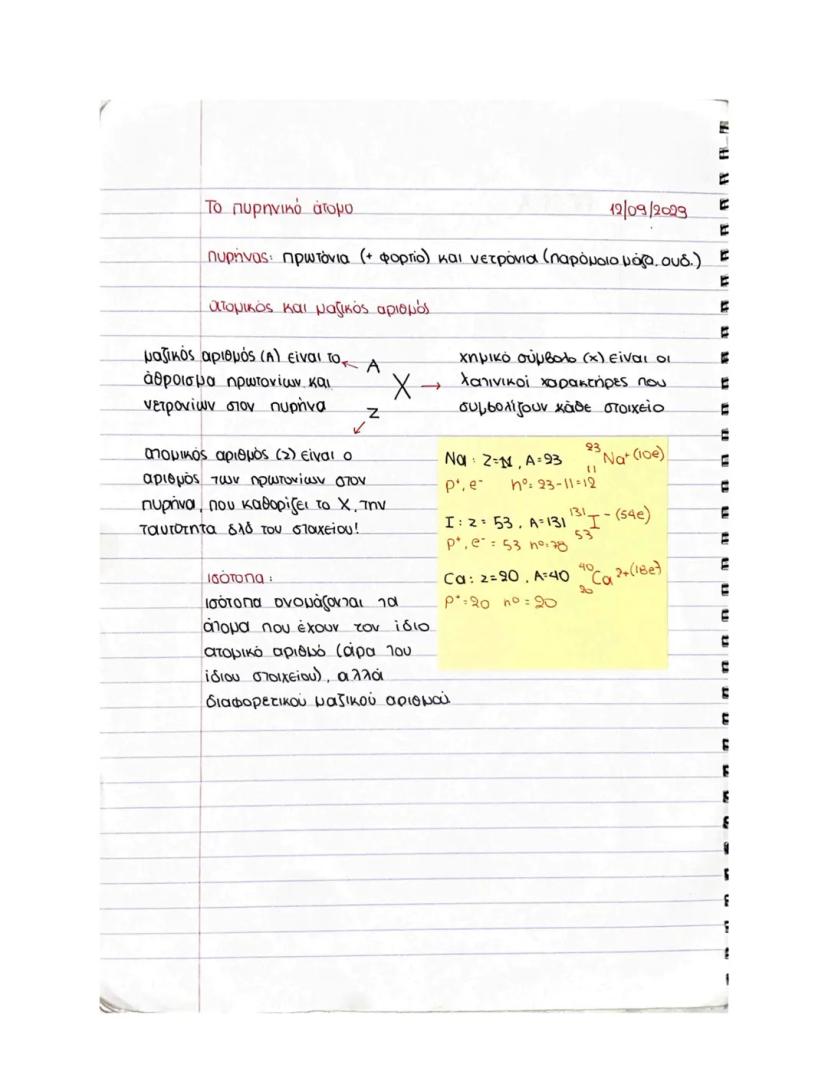 Το πυρηνικό άτομο 12/09/2023
πυρήνας: πρωτόνια (+ φορτίο) και νετρόνια (παρόμοια μάζα, ουδ.)
ατομικός και μαζικός αριθμός
μαζικός αριθμός (Α) είναι το
άθροισμα πρωτονίων και
νετρονίων στον πυρήνα
A
X
Z
χημικό σύμβολο (x) είναι οι
λατινικοί χαρακτήρες που
συμβολίζουν κάθε στοιχείο
ατομικός αριθμός (z) είναι ο
αριθμός των πρωτονίων στον
πυρήνα, που καθορίζει το Χ, την
ταυτότητα δλδ του στοιχείου!
Na: Z=11, A=23 ²³₁₁Na⁺ (10e)
p⁺, e⁻ n⁰= 23-11=12
I: z= 53, A=131 ¹³¹₅₃I⁻ (54e)
p⁺, e⁻ = 53 n⁰=78
Ca: z=20, A=40 ⁴⁰₂₀Ca²⁺ (18e)
p⁺=20 n⁰=20
ισότοπα:
ισότοπα ονομάζονται τα
άτομα που έχουν τον ίδιο
ατομικό αριθμό (άρα του
ίδιου στοιχείου), αλλά
διαφορετικού μαζικού αριθμού